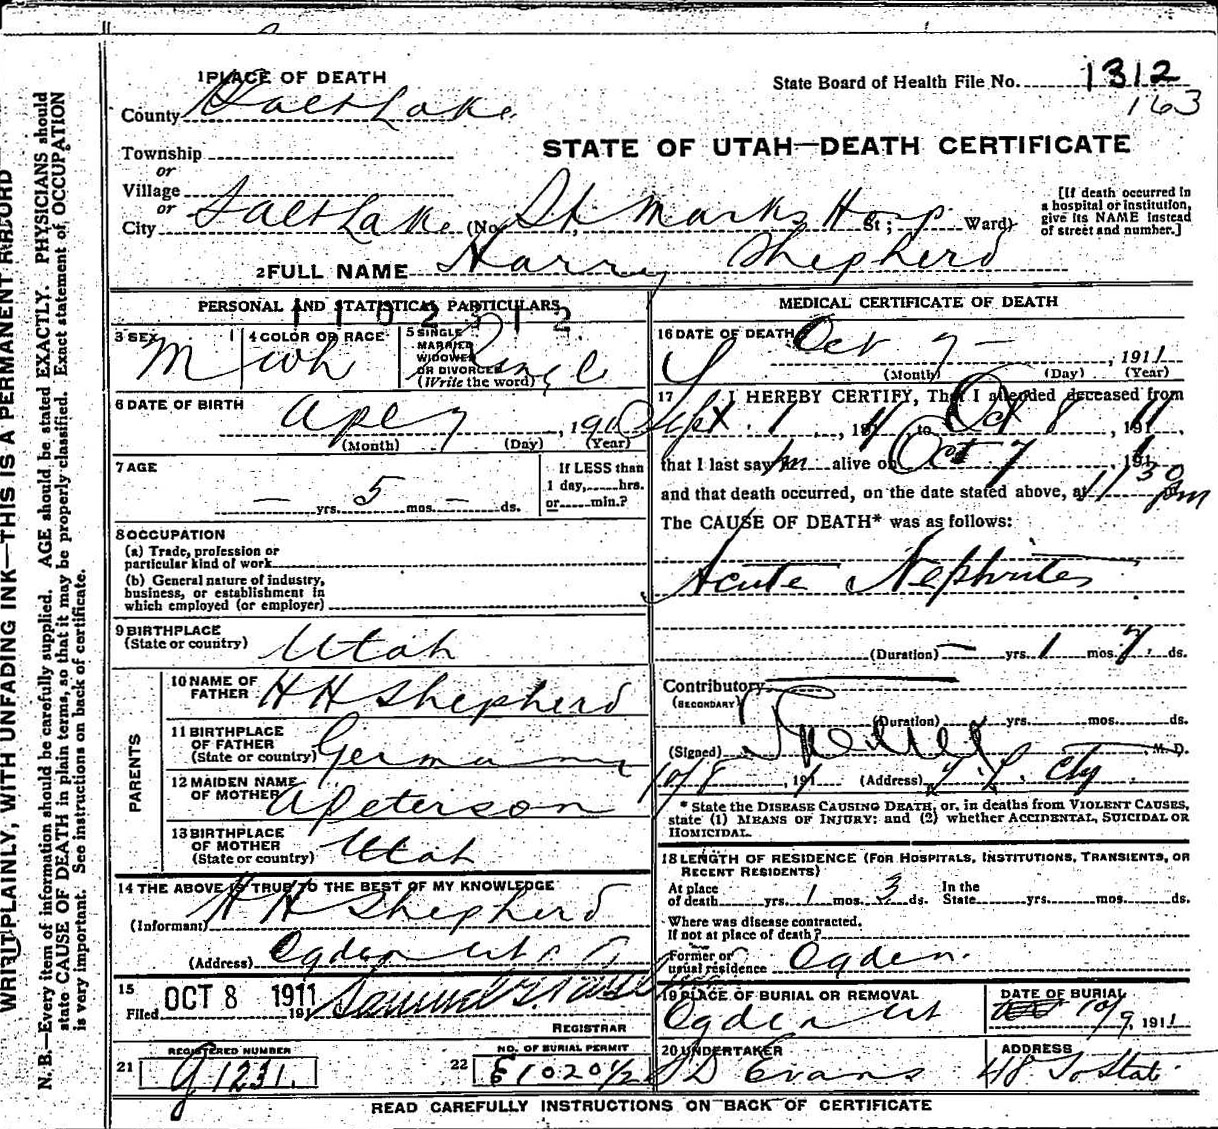 1 PLACE OF DEATH
State Board of Health File No. 1312
163
County Salt Lake
STATE OF UTAH—DEATH CERTIFICATE
Township
or
Village
or
City Salt Lake (No. St. Marks Hosp St.; Ward)
[If death occurred in a hospital or institution, give its NAME instead of street and number.]
2 FULL NAME Harry Shepherd
PERSONAL AND STATISTICAL PARTICULARS
1102312
3 SEX M
4 COLOR OR RACE Wh
5 SINGLE MARRIED WIDOWED OR DIVORCED (Write the word) Single
6 DATE OF BIRTH Apl 7, 190
(Month) (Day) (Year)
7 AGE — 5 —
yrs. mos. ds.
If LESS than 1 day, hrs. or min.?
8 OCCUPATION
(a) Trade, profession or particular kind of work
(b) General nature of industry, business, or establishment in which employed (or employer)
9 BIRTHPLACE
(State or country) Utah
PARENTS
10 NAME OF FATHER H H Shepherd
11 BIRTHPLACE OF FATHER (State or country) Germany
12 MAIDEN NAME OF MOTHER A Peterson
13 BIRTHPLACE OF MOTHER (State or country) Utah
14 THE ABOVE IS TRUE TO THE BEST OF MY KNOWLEDGE
(Informant) H H Shepherd
(Address) Ogden Ut
15 Filed OCT 8 1911 191 Samuel G
REGISTRAR
21 REGISTERED NUMBER G 1231.
22 NO. OF BURIAL PERMIT 1020 1/2
MEDICAL CERTIFICATE OF DEATH
16 DATE OF DEATH Oct 7 — , 1911
(Month) (Day) (Year)
17 I HEREBY CERTIFY, That I attended deceased from
Sept. 1, 1911, to Oct 8, 1911,
that I last saw him alive on Oct 7 1911
and that death occurred, on the date stated above, at 11 30 pm
The CAUSE OF DEATH* was as follows:
Acute Nephrites
(Duration) — yrs. 1 mos. 7. ds.
Contributory
(SECONDARY)
(Duration) yrs. mos. ds.
(Signed) M. D.
10/8, 191 1 (Address) City
* State the DISEASE CAUSING DEATH, or, in deaths from VIOLENT CAUSES, state (1) MEANS OF INJURY; and (2) whether ACCIDENTAL, SUICIDAL OR HOMICIDAL.
18 LENGTH OF RESIDENCE (FOR HOSPITALS, INSTITUTIONS, TRANSIENTS, OR RECENT RESIDENTS)
At place of death yrs. 1 mos. 3 ds. In the State yrs. mos. ds.
Where was disease contracted.
If not at place of death?
Former or usual residence Ogden.
19 PLACE OF BURIAL OR REMOVAL Ogden Ut
DATE OF BURIAL 10/9, 1911
20 UNDERTAKER S D Evans
ADDRESS 48 So State
READ CAREFULLY INSTRUCTIONS ON BACK OF CERTIFICATE
WRITE PLAINLY, WITH UNFADING INK—THIS IS A PERMANENT RECORD
N. B.—Every item of information should be carefully supplied. AGE should be stated EXACTLY. PHYSICIANS should
state CAUSE OF DEATH in plain terms, so that it may be properly classified. Exact statement of OCCUPATION
is very important. See instructions on back of certificate.